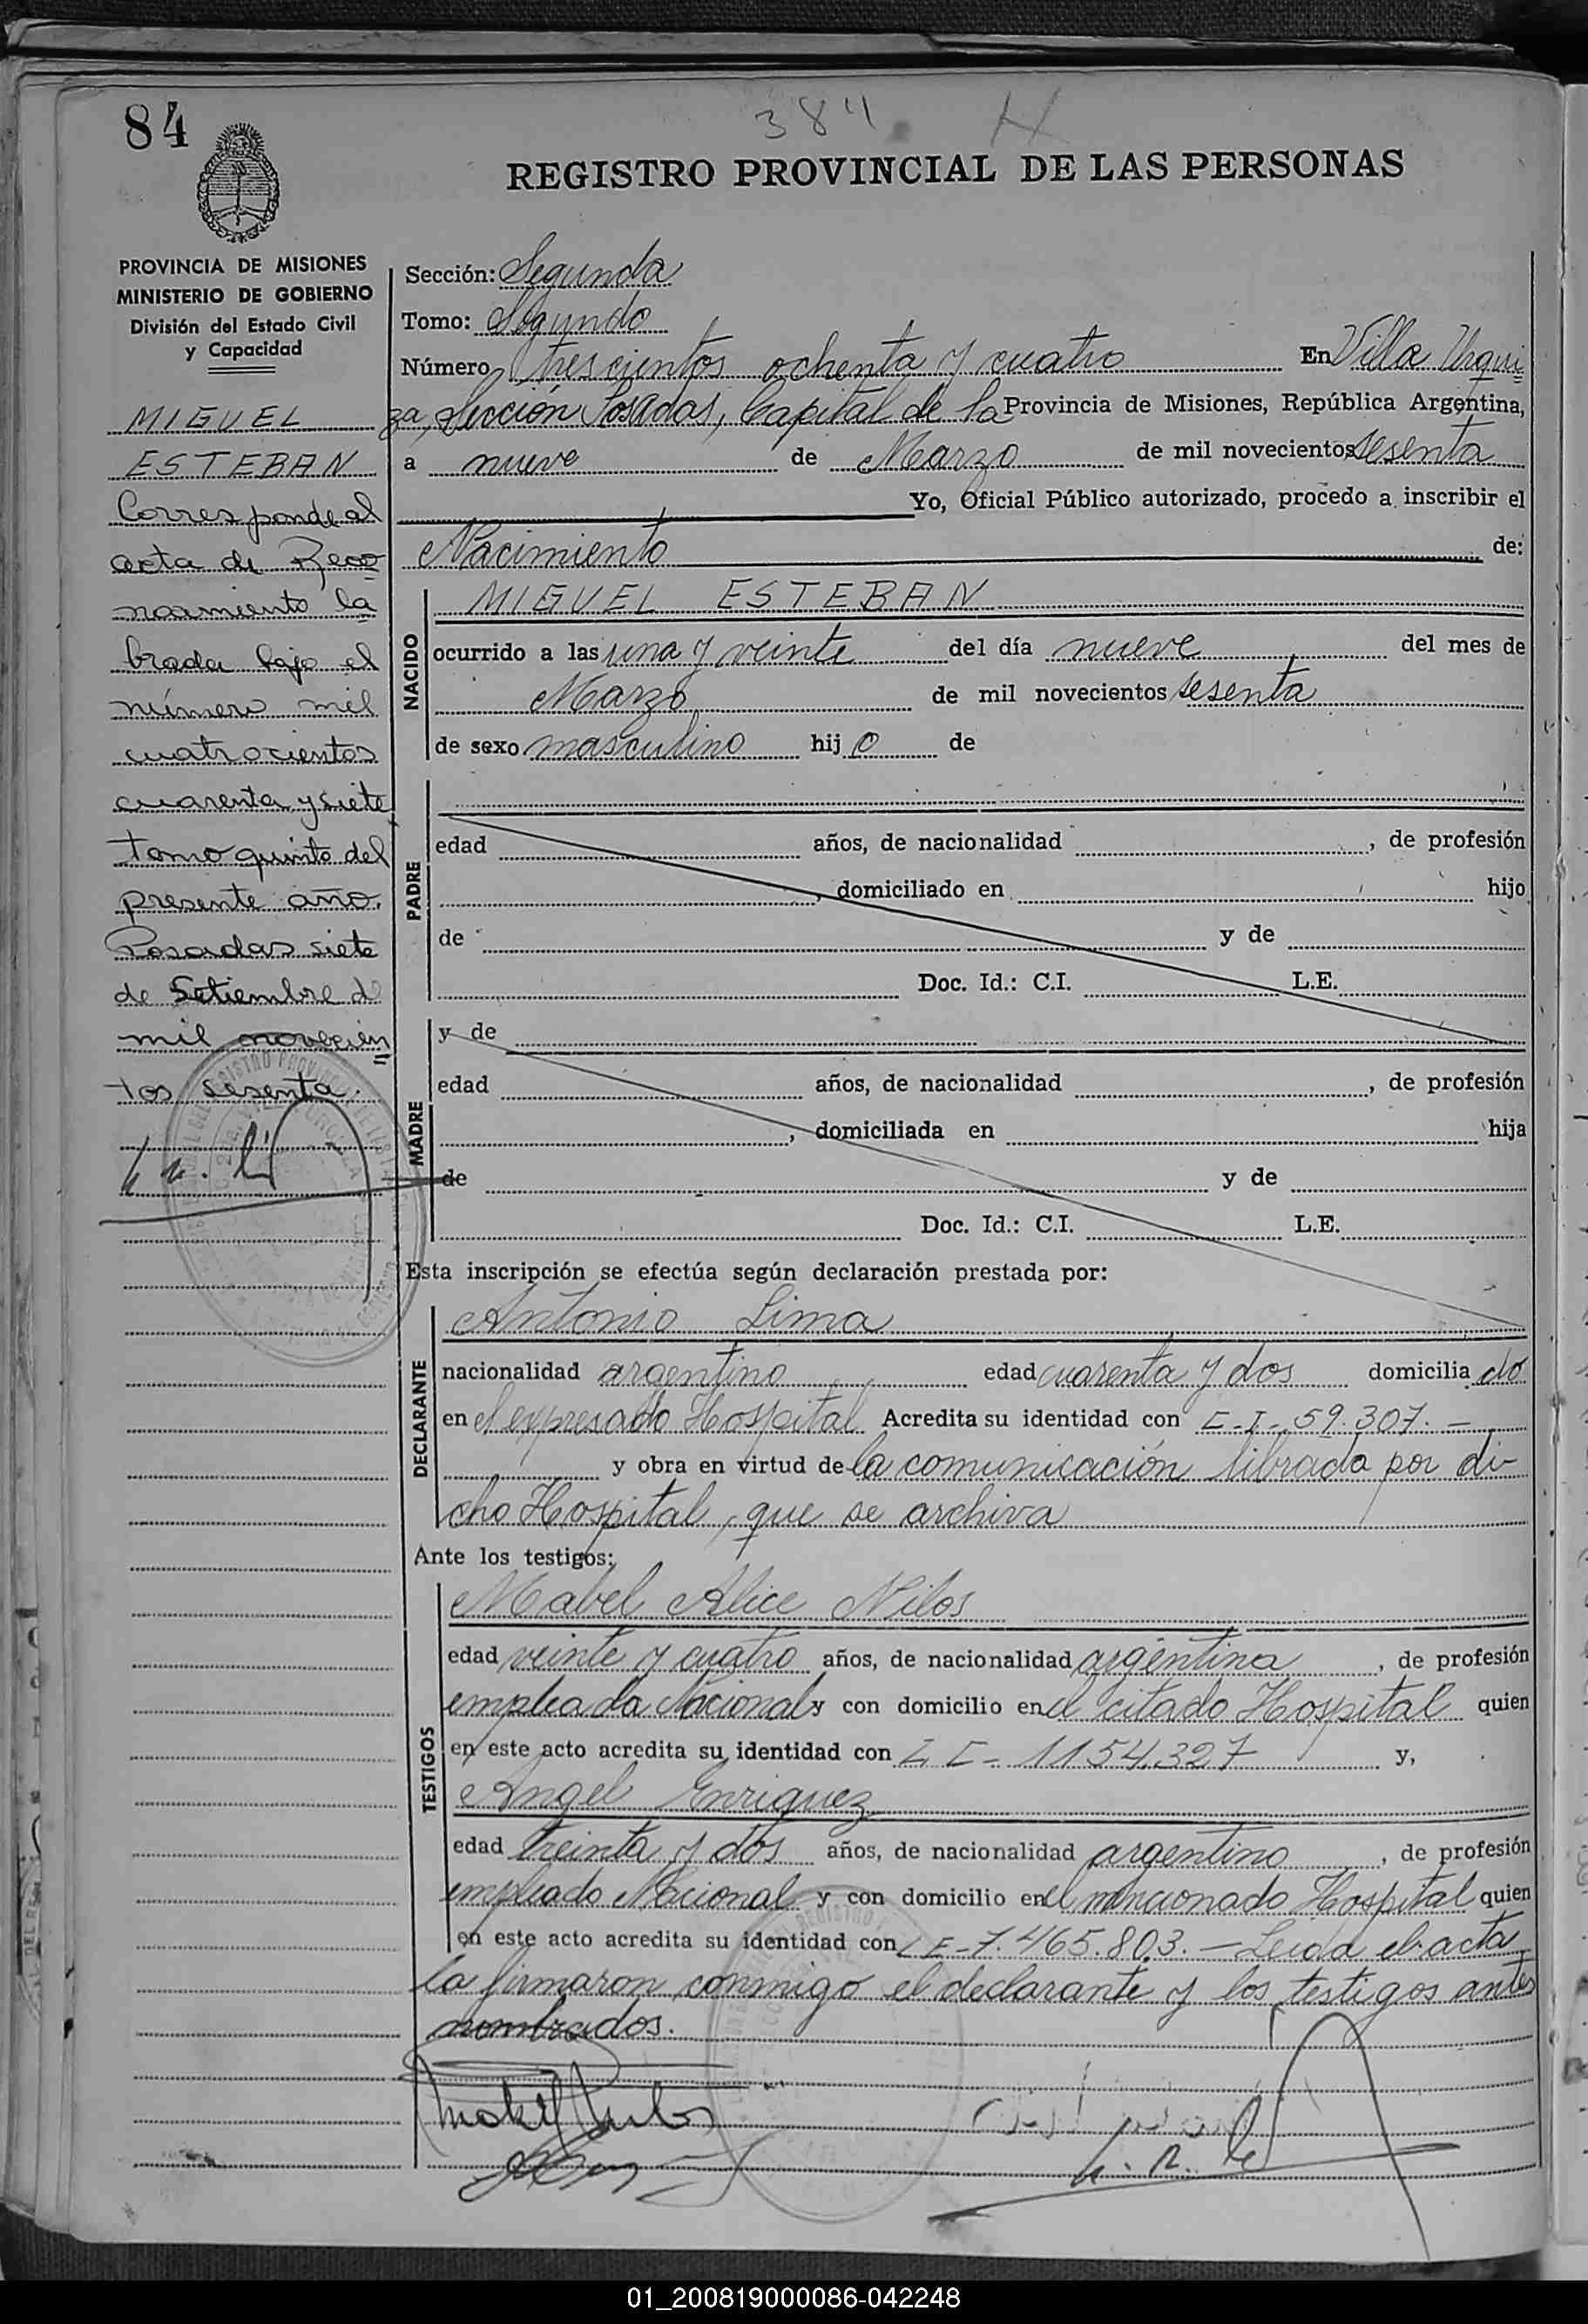 84
384
REGISTRO PROVINCIAL DE LAS PERSONAS
PROVINCIA DE MISIONES
MINISTERIO DE GOBIERNO
División del Estado Civil
y Capacidad
MIGUEL
ESTEBAN
Corresponde al
acta de Reco
nocimiento la
brada bajo el
número mil
cuatrocientos
cuarenta y siete
tomo quinto del
presente año.
Posadas siete
de Setiembre de
mil novecien
tos sesenta.
Sección: Segunda
Tomo: Segundo
Número trescientos ochenta y cuatro En Villa Urqui
za, Sección Posadas, Capital de la Provincia de Misiones, República Argentina,
a nueve de Marzo de mil novecientos sesenta
Yo, Oficial Público autorizado, procedo a inscribir el
Nacimiento de:
NACIDO
MIGUEL ESTEBAN
ocurrido a las una y veinte del día nueve del mes de
Marzo de mil novecientos sesenta
de sexo masculino hij o de
PADRE
edad años, de nacionalidad , de profesión
, domiciliado en hijo
de y de
Doc. Id.: C.I. L.E.
MADRE
y de
edad años, de nacionalidad , de profesión
, domiciliada en hija
de y de
Doc. Id.: C.I. L.E.
Esta inscripción se efectúa según declaración prestada por:
DECLARANTE
Antonio Lima
nacionalidad argentino edad cuarenta y dos domicilia do
en el expresado Hospital Acredita su identidad con C-I-59.307.-
y obra en virtud de la comunicación librada por di-
cho Hospital, que se archiva
Ante los testigos:
TESTIGOS
Mabel Alice Nilos
edad veinte y cuatro años, de nacionalidad argentina , de profesión
empleada Nacional y con domicilio en el citado Hospital quien
en este acto acredita su identidad con L C- 1154.327 y,
Angel Enriquez
edad treinta y dos años, de nacionalidad argentino , de profesión
empleado Nacional y con domicilio en el mencionado Hospital quien
en este acto acredita su identidad con L E-7.465.803.- Leida el acta
la firmaron conmigo el declarante y los testigos antes
nombrados.
01_200819000086-042248